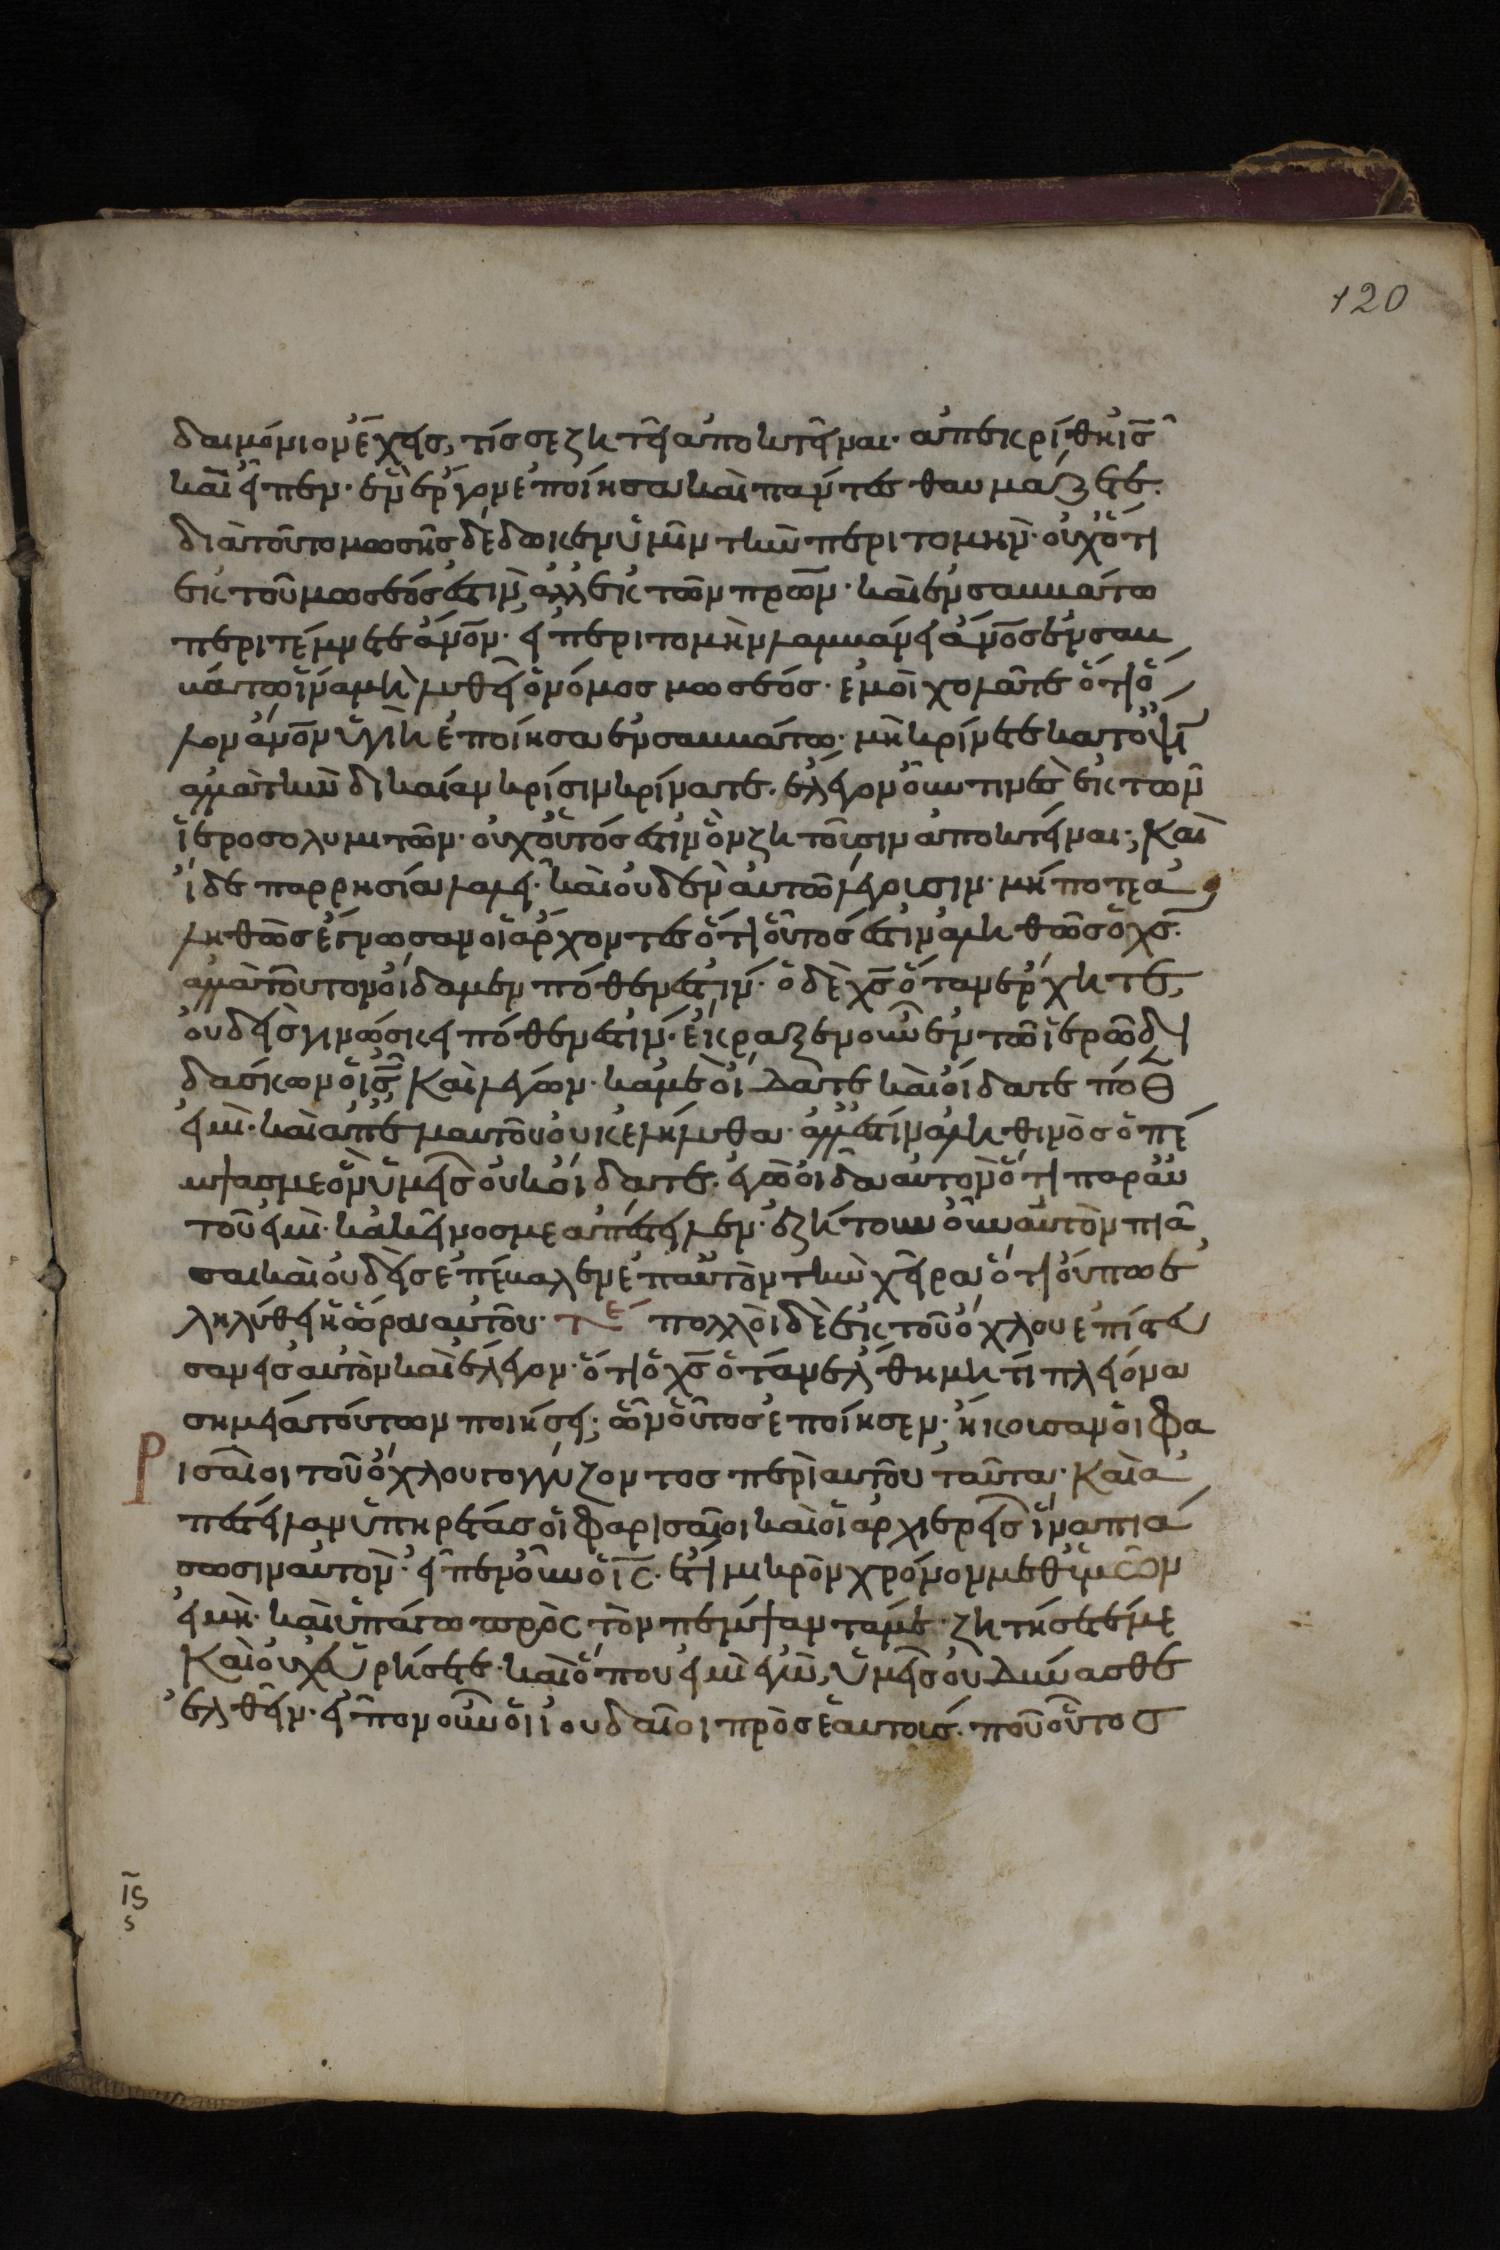 δαιμόνιον ἔχεις, τίς σε ζητεῖ ἀποκτεῖναι· ἀπεκρίθη ι̅ς̅
καὶ εἶπεν· ἓν ἔργον ἐποίησα καὶ πάντες θαυμάζετε·
διὰ τοῦτο μωσῆς δέδωκεν ὑμῖν τὴν περιτομήν· οὐχ ὅτι
ἐκ τοῦ μωσέος ἐστὶν ἀλλ ἐκ τῶν π̅ρ̅ω̅ν̅· καὶ ἐν σαββάτω
περιτέμνετε α̅ν̅ο̅ν̅· εἰ περιτομὴν λαμβάνει α̅ν̅ο̅ς̅ ἐν σαβ
βάτω ἵνα μὴ λυθῆ ὁ νόμος μωσέος· ἐμοὶ χολᾶτε ὅτι ὅ
λον α̅ν̅ο̅ν̅ ὑγιῆ ἐποίησα ἐν σαββάτω· μὴ κρίνετε κατ ὄψι̅
ἀλλὰ τὴν δικαίαν κρίσιν κρίνατε· ἔλεγον οὖν τινὲς ἐκ τῶν
ἱεροσολυμιτῶν· οὐχ οὗτός ἐστιν ὃν ζητοῦσιν ἀποκτεῖναι; Καὶ
ἴδε παρρησία λαλεῖ· καὶ οὐδὲν αὐτῶ λέγουσιν· μήποτε ἀ
ληθῶς ἔγνωσαν οἱ ἄρχοντες ὅτι οὗτός ἐστιν ἀληθῶς ὁ χ̅ς̅·
ἀλλὰ τοῦτον οἴδαμεν πόθεν ἐστίν· ὁ δὲ χ̅ς̅ ὅταν ἔρχητε,
οὐδεὶς γινώσκει πόθεν ἐστίν· ἔκραξεν οὖν ἐν τῶ ἱερῶ δι
δάσκων ὁ ι̅ς̅ Καὶ λέγων· κἀμὲ οἴδατε καὶ οἴδατε πόθ
εἰμὶ· καὶ ἀπ ἐμαυτοῦ οὐκ ἐλήλυθα· ἀλλ ἔστιν ἀληθινὸς ὁ πέ
μψας με ὃν ὑμεῖς οὐκ οἴδατε· ἐγὼ οἶδα αὐτὸν ὅτι παρ αὐ
τοῦ εἰμὶ· κἀκεῖνος με ἀπέστειλεν· ἐζήτουν οὖν αὐτὸν πιᾶ
σαι καὶ οὐδεὶς ἐπέβαλεν ἐπ αὐτὸν τὴν χεῖρα, ὅτι οὔπω ἐ
ληλύθει ἡ ὥρα αὐτοῦ· πολλοὶ δὲ ἐκ τοῦ ὄχλου ἐπίστευ
σαν εἰς αὐτὸν καὶ ἔλεγον· ὅτι ὁ χ̅ς̅ ὅταν ἔλθη μήτι πλείονα
σημεῖα τούτων ποιήσει; ὧν οὗτος ἐποίησεν· ἤκουσαν οἱ Φα
ρισαῖοι τοῦ ὄχλου γογγύζοντος περὶ αὐτοῦ ταῦτα· Καὶ ἀ
πέστειλαν ὑπηρέτας οἱ Φαρισαῖοι καὶ οἱ ἀρχιερεῖς ἵνα πιά
σωσιν αὐτόν· εἶπεν οὖν ὁ ι̅ς̅· ἔτι μικρὸν χρόνον μεθ ὑμῶν
εἰμὶ· καὶ ὑπάγω πρὸς τὸν πέμψαντά με· ζητήσετέ με
Καὶ οὐχ εὑρήσετε· καὶ ὅπου εἰμὶ ἐγὼ, ὑμεῖς οὐ δύνασθε
ἐλθεῖν· εἶπον οὖν οἱ ἰουδαῖοι πρὸς ἑαυτούς· ποῦ οὗτος
ι̅ς̅
120